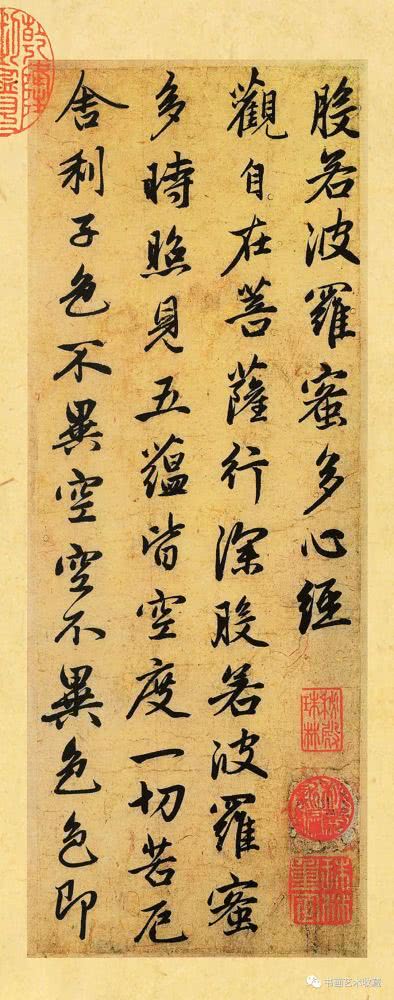 般若波羅蜜多心經
觀自在菩薩行深般若波羅蜜
多時照見五蘊皆空度一切苦厄
舍利子色不異空空不異色色即
秘殿珠林
珠林重定
书画艺术收藏